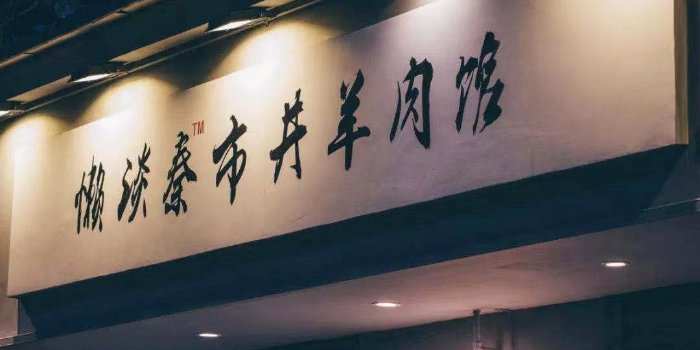 懒谈秦™市井羊肉馆